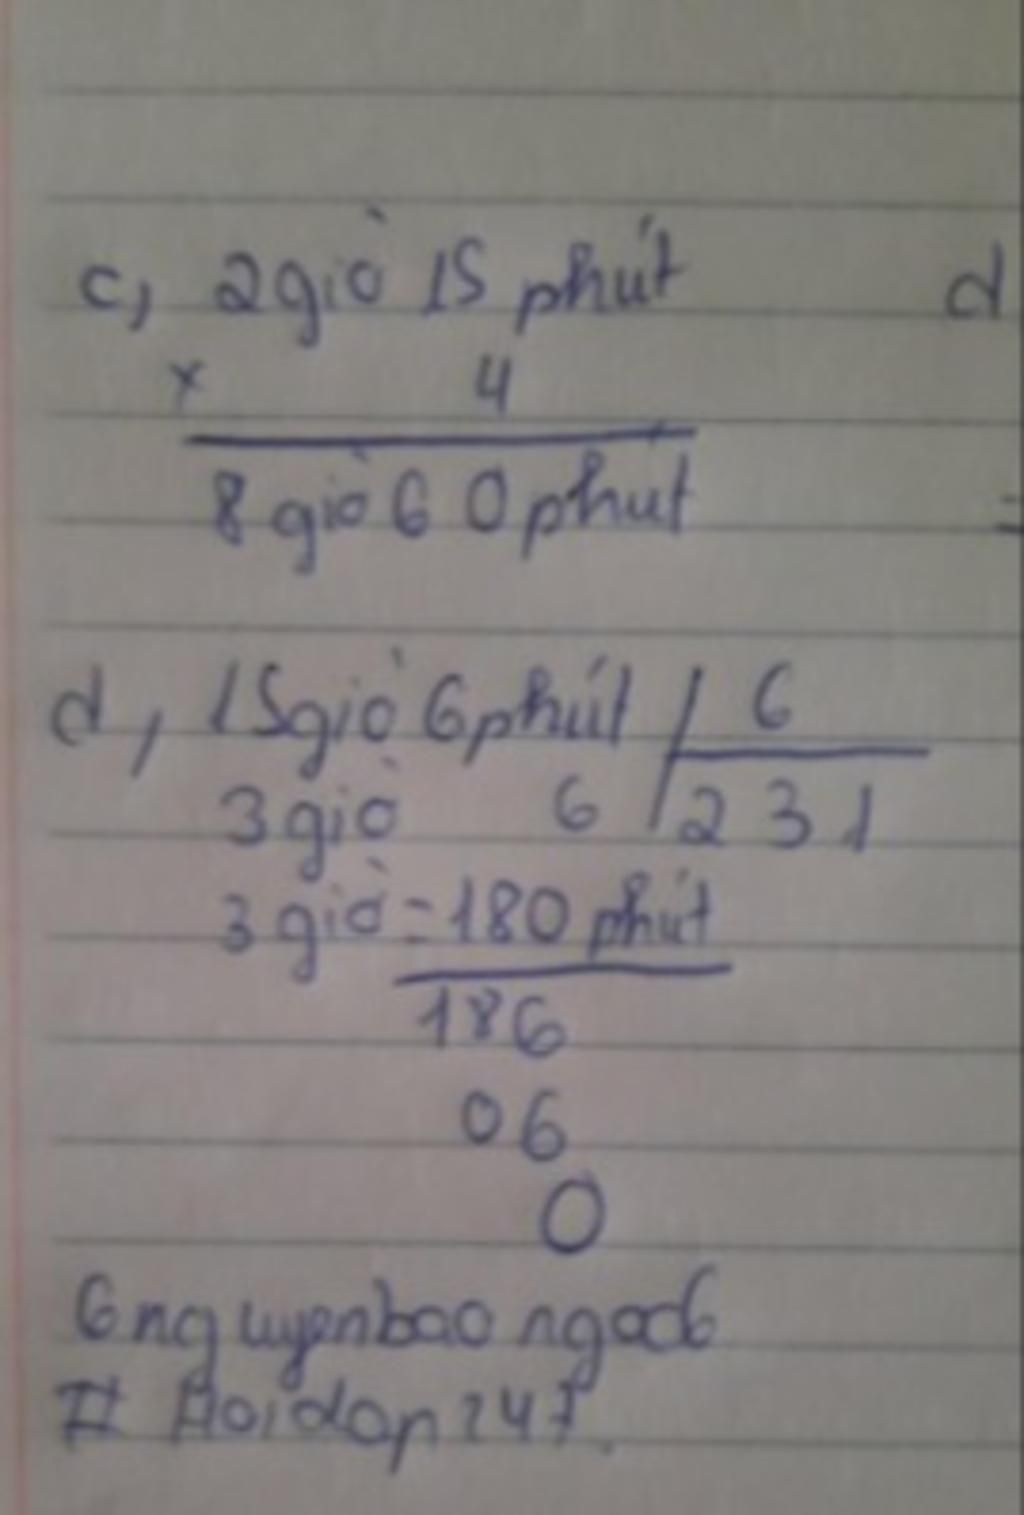 c, 2giờ 15 phút
d
x 4
8 giờ 60 phút
=
d, 15giờ 6phút 6
3giờ 6 231
3giờ = 180 phút
186
06
0
6nguyenbaongoc6
# Hoidap247.